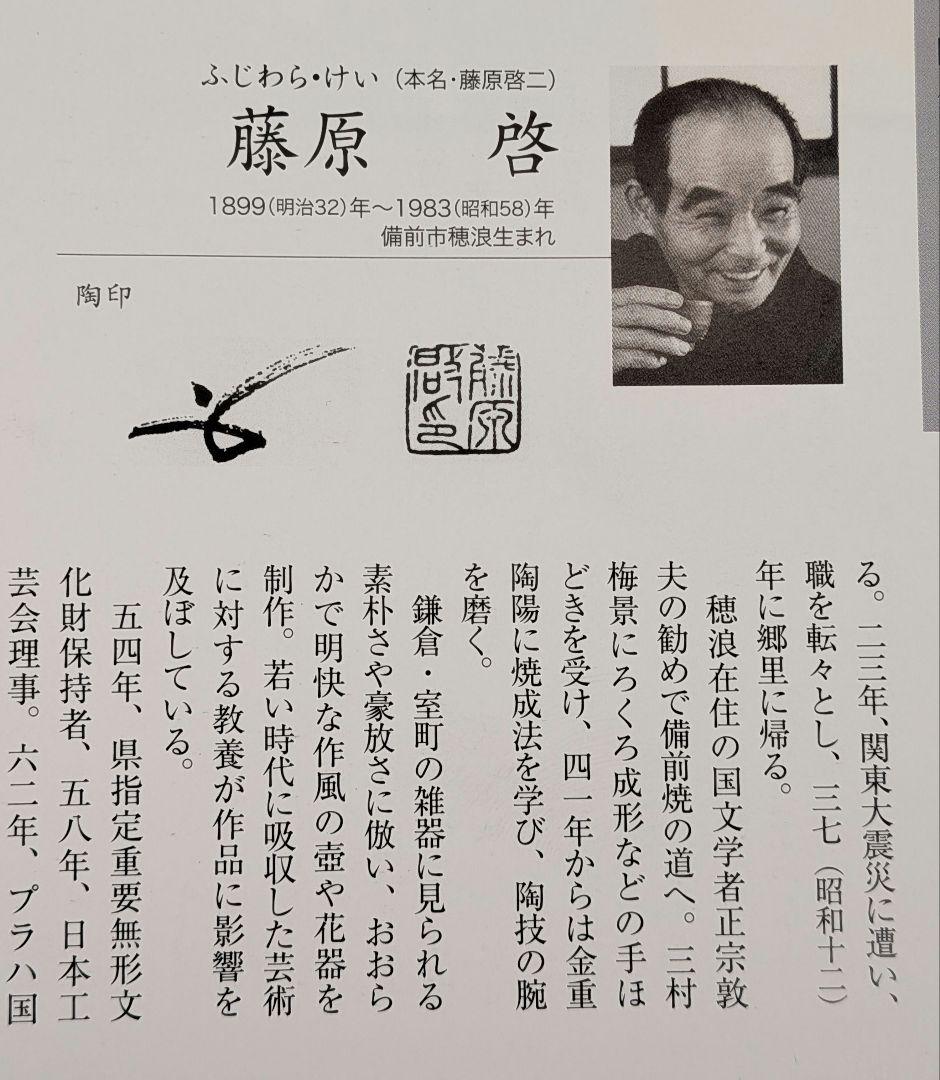 ふじわら・けい（本名・藤原啓二）
藤原　啓
1899（明治32）年〜1983（昭和58）年
備前市穂浪生まれ
陶印
藤原
啓印
る。二三年、関東大震災に遭い、
職を転々とし、三七（昭和十二）
年に郷里に帰る。
穂浪在住の国文学者正宗敦
夫の勧めで備前焼の道へ。三村
梅景にろくろ成形などの手ほ
どきを受け、四一年からは金重
陶陽に焼成法を学び、陶技の腕
を磨く。
鎌倉・室町の雑器に見られる
素朴さや豪放さに倣い、おおら
かで明快な作風の壺や花器を
制作。若い時代に吸収した芸術
に対する教養が作品に影響を
及ぼしている。
五四年、県指定重要無形文
化財保持者、五八年、日本工
芸会理事。六二年、プラハ国